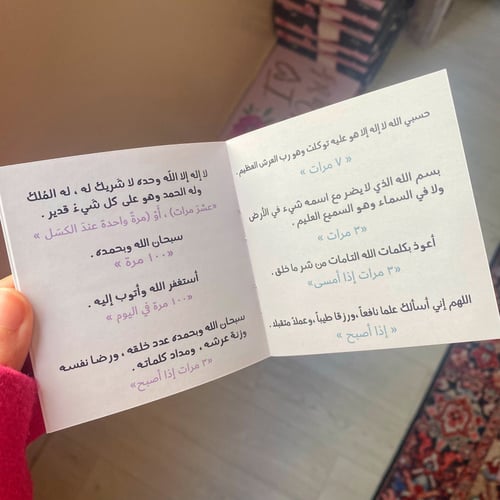 حسبي الله لا إله إلا هو عليه توكلت وهو رب العرش العظيم.
« ٧ مرات »
بسم الله الذي لا يضر مع اسمه شيء في الأرض
ولا في السماء وهو السميع العليم.
«٣ مرات »
أعوذ بكلمات الله التامات من شر ما خلق.
«٣ مرات إذا أمسى»
اللهم إني أسألك علما نافعاً، ورزقا طيباً، وعملاً متقبلا.
« إذا أصبح »
لا إله إلا الله وحده لا شريك له ، له الملك
وله الحمد وهو على كل شيء قدير .
«عشر مرات) ، أو (مرة واحدة عند الكسل »
سبحان الله وبحمده .
«١٠٠ مرة »
أستغفر الله وأتوب إليه .
«١٠٠ مرة في اليوم »
سبحان الله وبحمده عدد خلقه ، ورضا نفسه
وزنة عرشه ، ومداد كلماته .
«٣ مرات إذا أصبح»